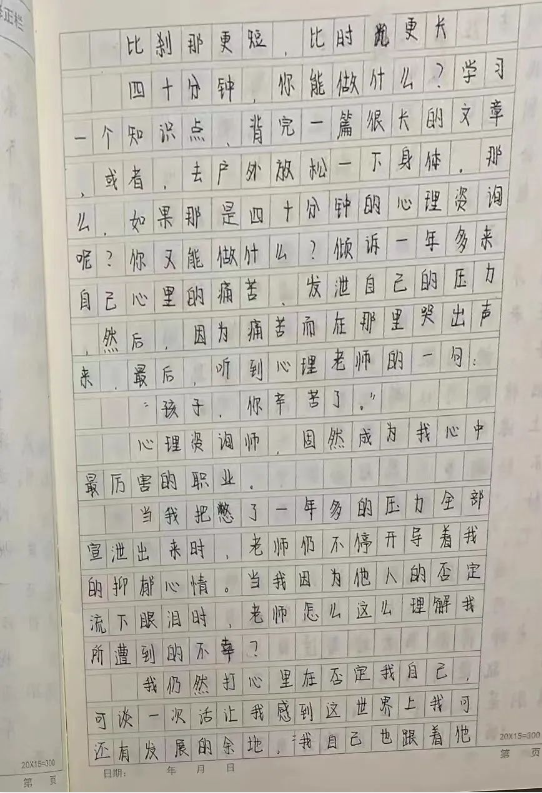 择正栏
比刹那更短，比时光更长
四十分钟，你能做什么？学习
一个知识点，背完一篇很长的文章
，或者，去户外放松一下身体，那
么，如果那是四十分钟的心理资询
呢？你又能做什么？倾诉一年多来
自己心里的痛苦，发泄自己的压力
，然后，因为痛苦而在那里哭出声
来，最后，听到心理老师的一句：
“孩子，你辛苦了。”
心理资询师，固然成为我心中
最厉害的职业。
当我把憋了一年多的压力全部
宣泄出来时，老师仍不停开导着我
的抑郁心情。当我因为他人的否定
流下眼泪时，老师怎么这么理解我
所遭到的不幸？
我仍然打心里在否定我自己，
可谈一次话让我感到这世界上我可
还有发展的余地，“我自己也跟着他
20X15=300
第 页
日期： 年 月 日
20X15=300
第 页